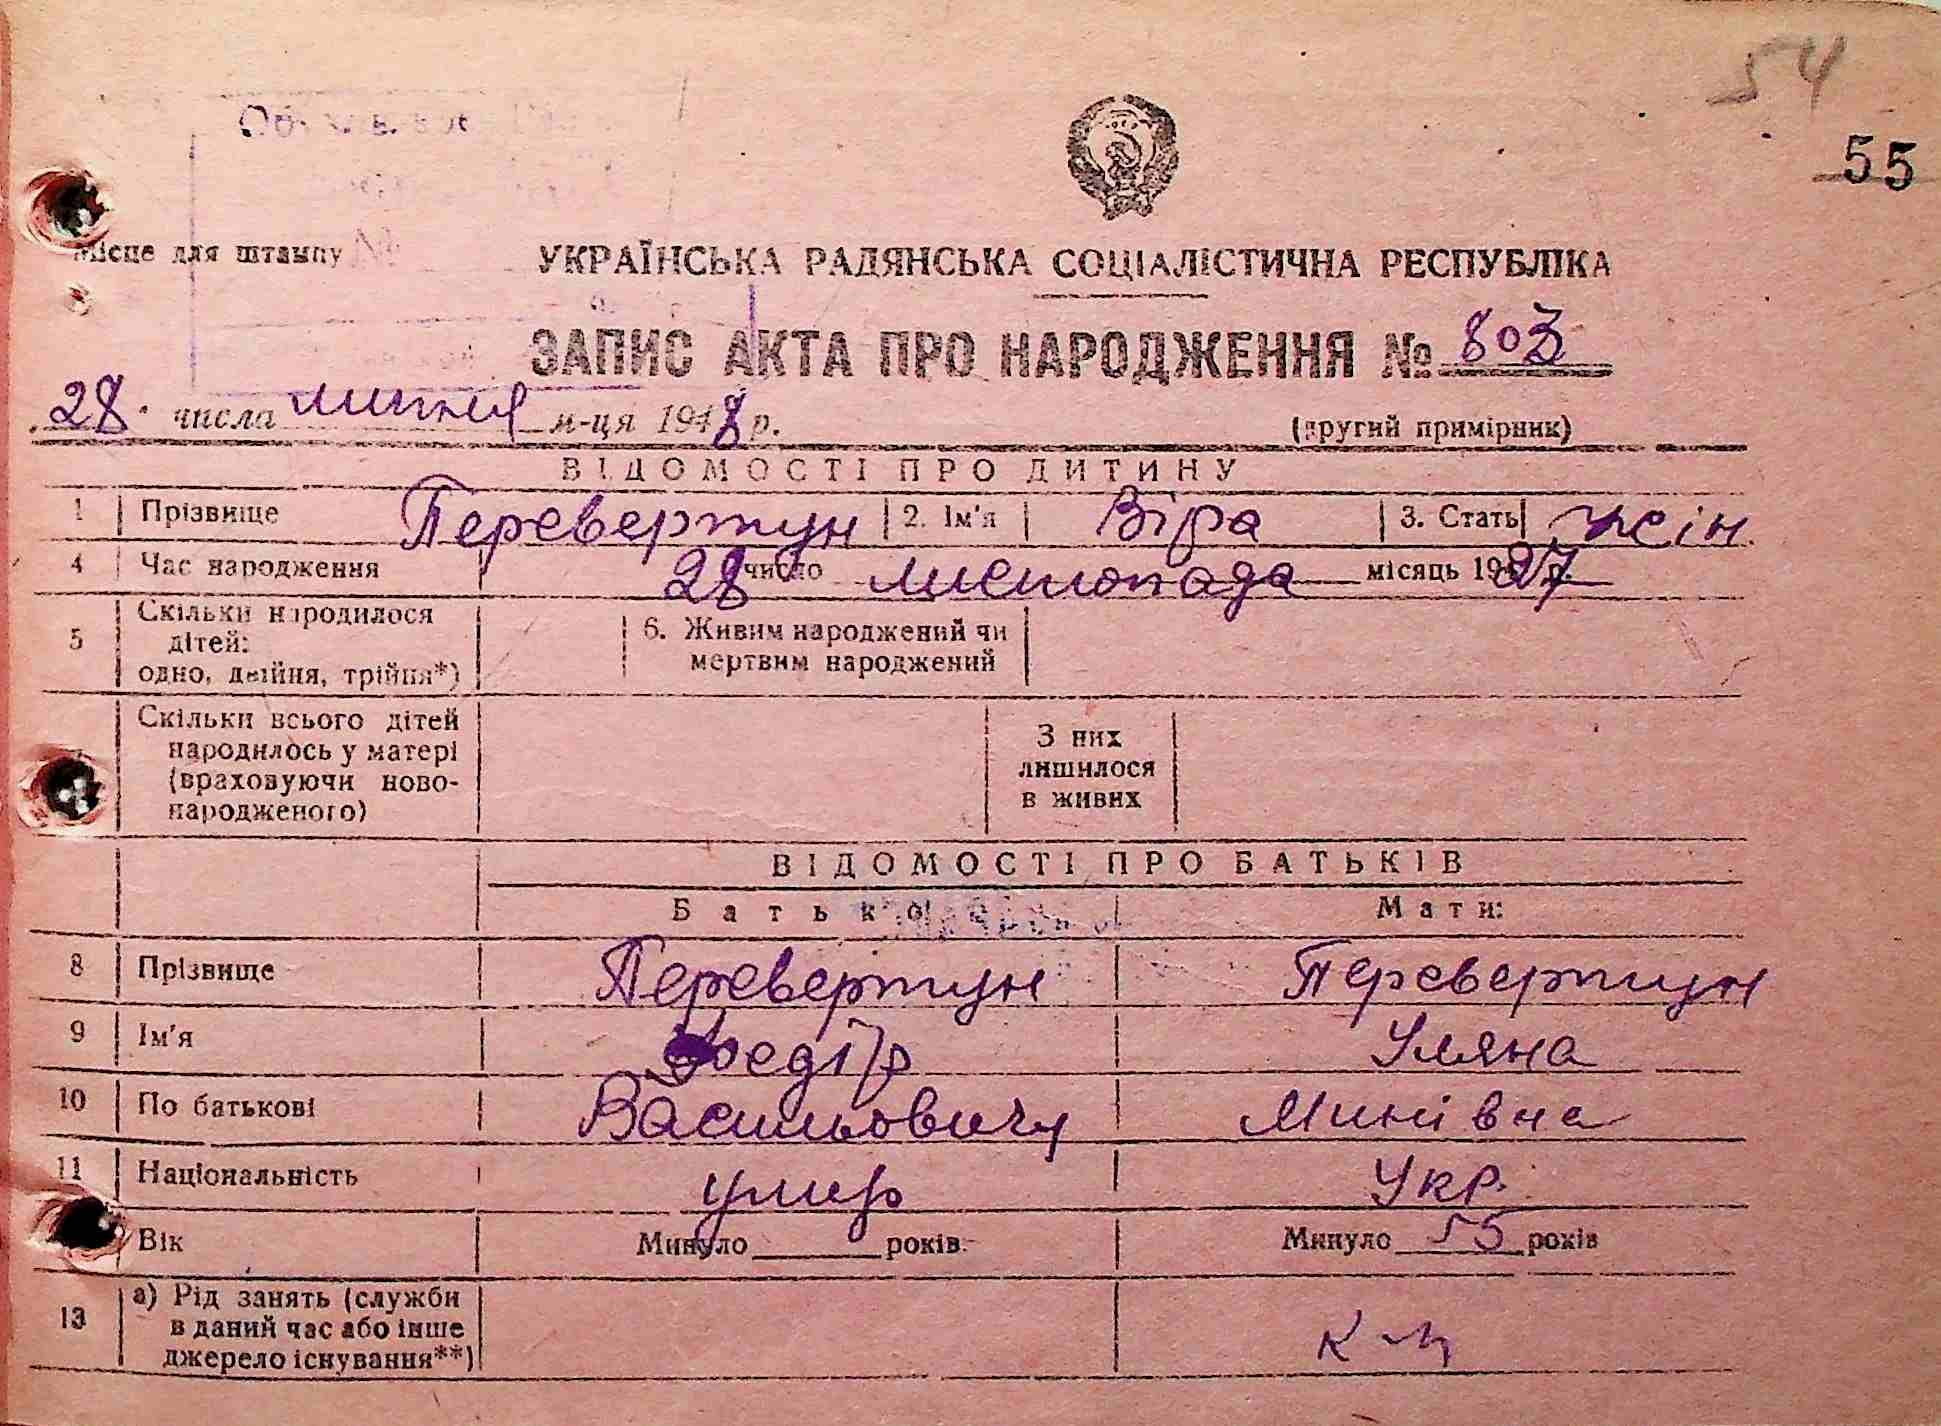 54
55
Місце для штампу
УКРАЇНСЬКА РАДЯНСЬКА СОЦІАЛІСТИЧНА РЕСПУБЛІКА
ЗАПИС АКТА ПРО НАРОДЖЕННЯ № 803
28 числа липня м-ця 1948 р.
(другий примірник)
ВІДОМОСТІ ПРО ДИТИНУ
1 Прізвище Перевертун 2. Ім'я Віра 3. Стать жін.
4 Час народження 28 число листопада місяць 1927 р.
5 Скільки народилося дітей: одно, двійня, трійня*) 6. Живим народжений чи мертвим народжений
Скільки всього дітей народилось у матері (враховуючи ново-народженого) З них лишилося в живих
ВІДОМОСТІ ПРО БАТЬКІВ
Батько Мати:
8 Прізвище Перевертун Перевертун
9 Ім'я Федір Уляна
10 По батькові Васильович Минівна
11 Національність умер Укр.
Вік Минуло ___ років. Минуло 55 років
13 а) Рід занять (служби в даний час або інше джерело існування**) к-ц